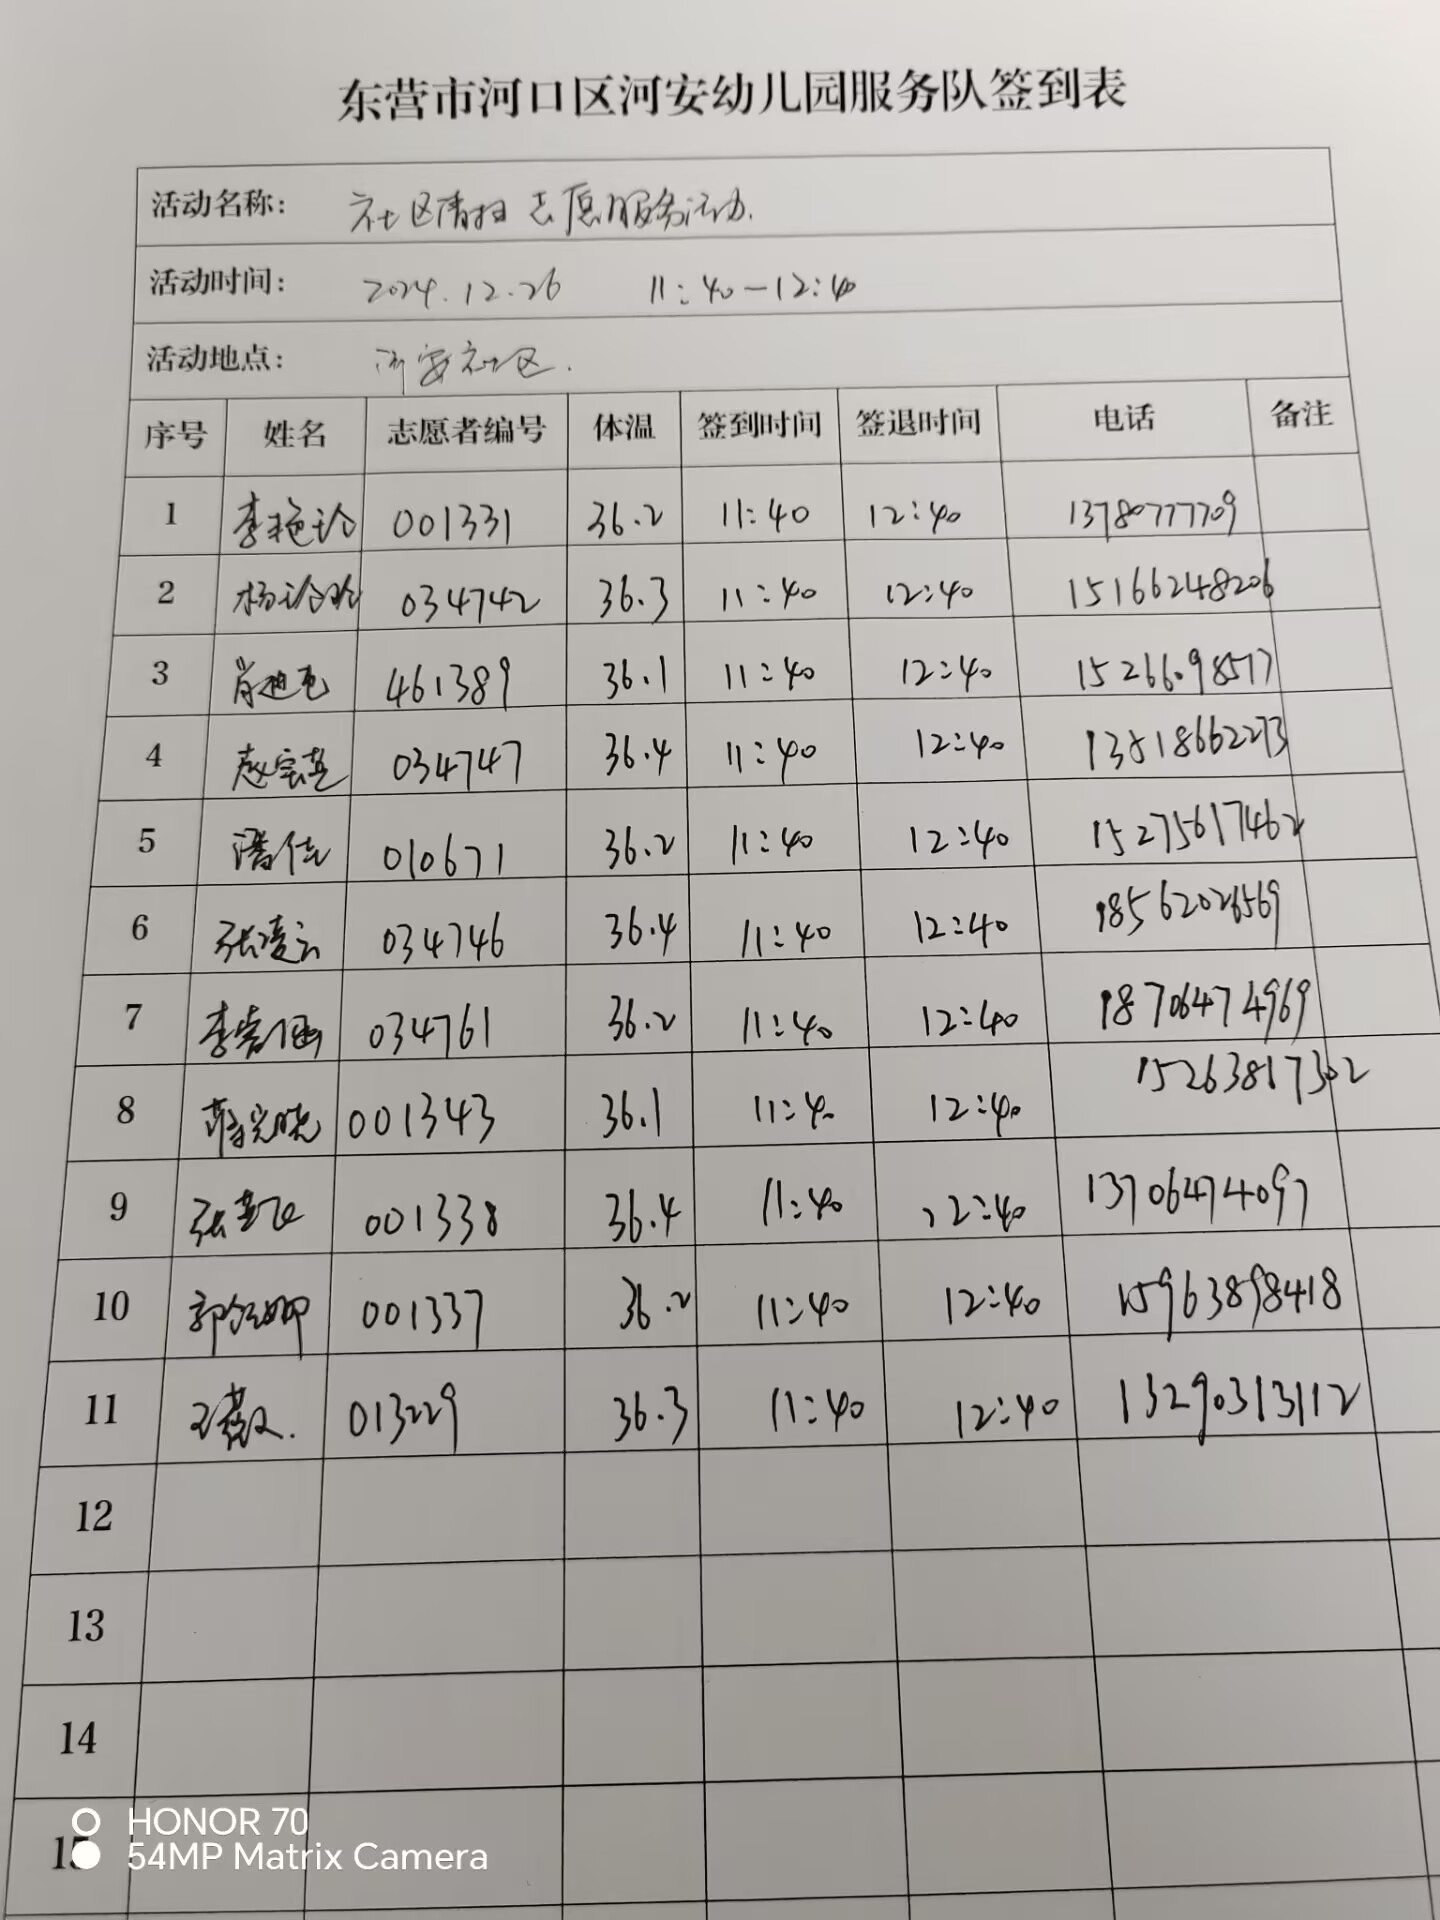 东营市河口区河安幼儿园服务队签到表
活动名称: 社区清扫志愿服务活动.
活动时间: 2024.12.26 11:40-12:40
活动地点: 河安社区.
序号 姓名 志愿者编号 体温 签到时间 签退时间 电话 备注
1 李艳玲 001331 36.2 11:40 12:40 13780777709
2 杨 034742 36.3 11:40 12:40 15166248206
3 肖迪 461389 36.1 11:40 12:40 15266098577
4 赵 034747 36.4 11:40 12:40 13518662273
5 潘佳 010671 36.2 11:40 12:40 15275617462
6 张凌云 034746 36.4 11:40 12:40
7 李 034761 36.2 11:40 12:40 18706474969
8 晓 001343 36.1 11:40 12:40 15263817302
9 张 001338 36.4 11:40 12:40 13706474097
10 郭 娜 001337 36.2 11:40 12:40 15963898418
11 王 013229 36.3 11:40 12:40 13290313112
12
13
14
15
HONOR 70
54MP Matrix Camera